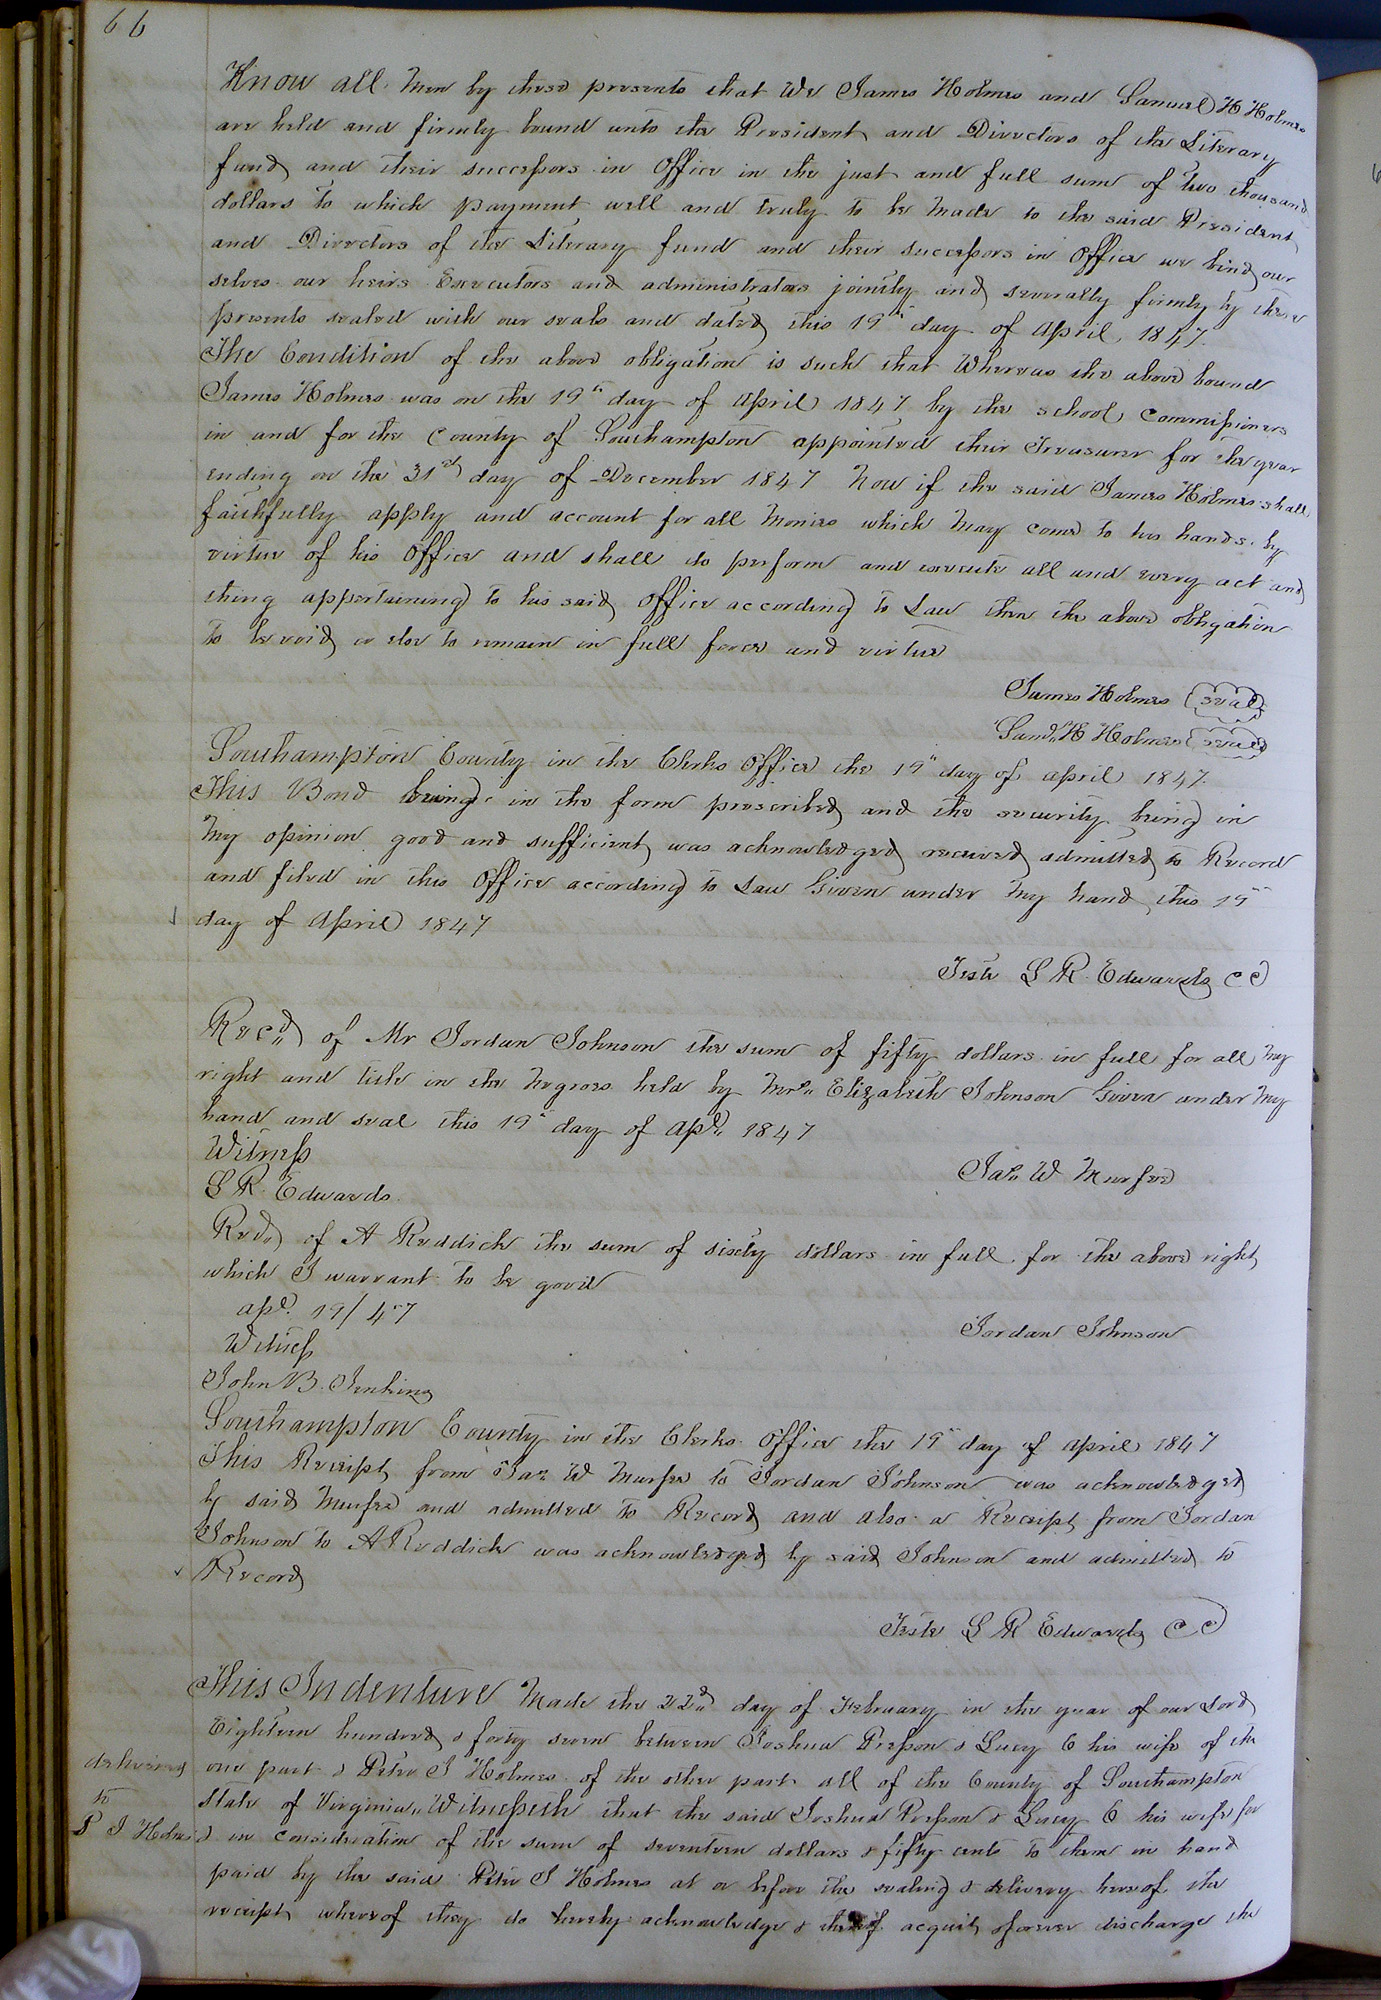 66
Know all Men by these presents that We James Holmes and Samuel H Holmes
are held and firmly bound unto the President and Directors of the Literary
fund and their successors in Office in the just and full sum of two thousand
dollars to which payment well and truly to be Made to the said President
and Directors of the Literary fund and their successors in Office we bind our
selves our heirs Executors and administrators jointly and severally firmly by these
presents sealed with our seals and dated this 19th day of April 1847.
The Condition of the above obligation is such that Whereas the above bound
James Holmes was on the 19th day of April 1847 by the school Commissioners
in and for the County of Southampton appointed their Treasurer for the year
ending on the 31st day of December 1847 Now if the said James Holmes shall
faithfully apply and account for all Monies which May come to his hands by
virtue of his Office and shall do perform and execute all and every act and
thing appertaining to his said Office according to Law then the above obligation
to be void or else to remain in full force and virtue
James Holmes seal
Saml H Holmes seal
Southampton County in the Clerks Office the 19th day of April 1847.
This Bond being in the form prescribed and the security being in
My opinion good and sufficient was acknowledged received admitted to Record
and filed in this Office according to Law Given under My hand this 19th
day of April 1847
Teste L R Edwards C C
Recd of Mr Jordan Johnson the sum of fifty dollars in full for all My
right and title in the Negroes held by Mrs Elizabeth Johnson Given under My
hand and seal this 19th day of Apl 1847
Witness
L R Edwards
Jas W Murfee
Recd of A Reddick the sum of sixty dollars in full for the above right
which I warrant to be good
Apl. 19/47
Jordan Johnson
Witness
John B. Jenkins
Southampton County in the Clerks Office the 19th day of April 1847
This Receipt from Jas W Murfee to Jordan Johnson was acknowledged
by said Murfee and admitted to Record and also a Receipt from Jordan
Johnson to A Reddick was acknowledged by said Johnson and admitted to
Record
Teste L R Edwards C C
This Indenture Made the 22nd day of February in the year of our Lord
Eighteen hundred & forty seven between Joshua Presson & Lucy C his wife of the
one part & Peter J Holmes of the other part all of the County of Southampton
delivered
to
P J Holmes
State of Virginia, Witnesseth that the said Joshua Presson & Lucy C his wife for
& in consideration of the sum of seventeen dollars & fifty cents to them in hand
paid by the said Peter J Holmes at or before the sealing & delivery hereof the
receipt whereof they do hereby acknowledge & thereof acquit & forever discharge the